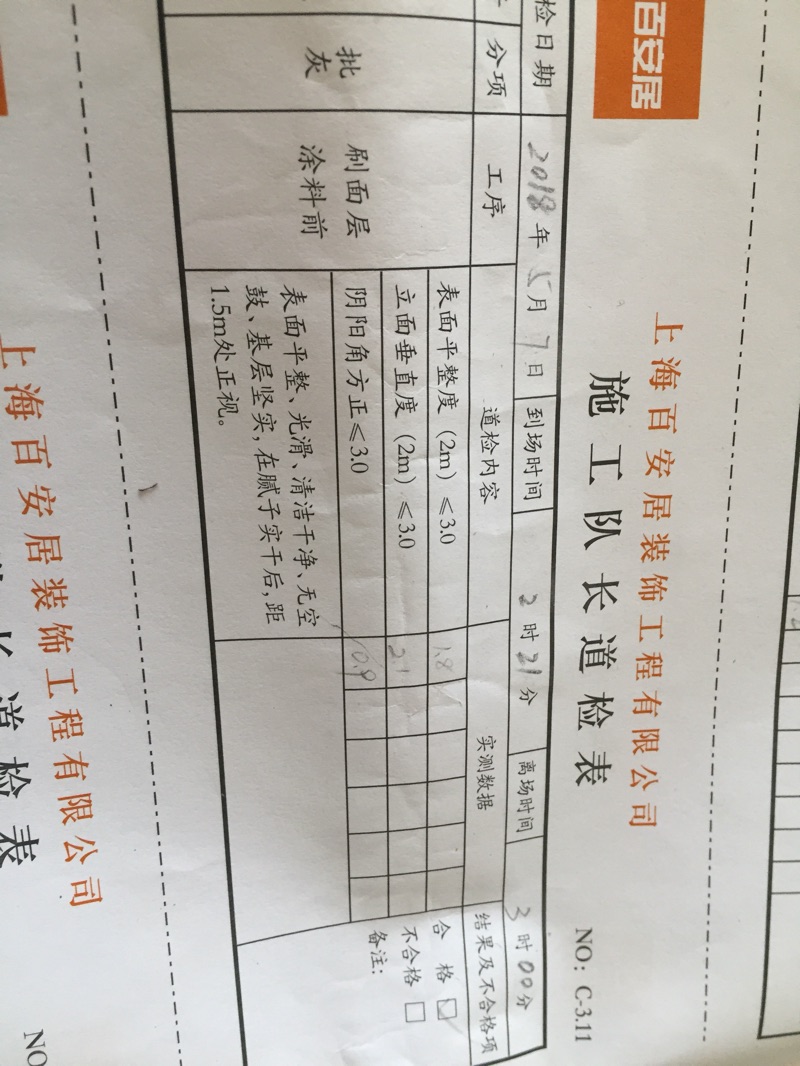 百安居
上海百安居装饰工程有限公司
施工队长道检表
NO: C-3.11
检日期 2018年5月7日 到场时间 2时21分 离场时间 3时00分
分项 工序 道检内容 实测数据 结果及不合格项
批灰
刷面层
涂料前
表面平整度(2m)≤3.0 1.8
立面垂直度(2m)≤3.0 2.1
阴阳角方正≤3.0 0.9
表面平整、光滑、清洁干净、无空
鼓、基层坚实,在腻子实干后,距
1.5m处正视。
合格
不合格
备注:
上海百安居装饰工程有限公司
长道检表
NO